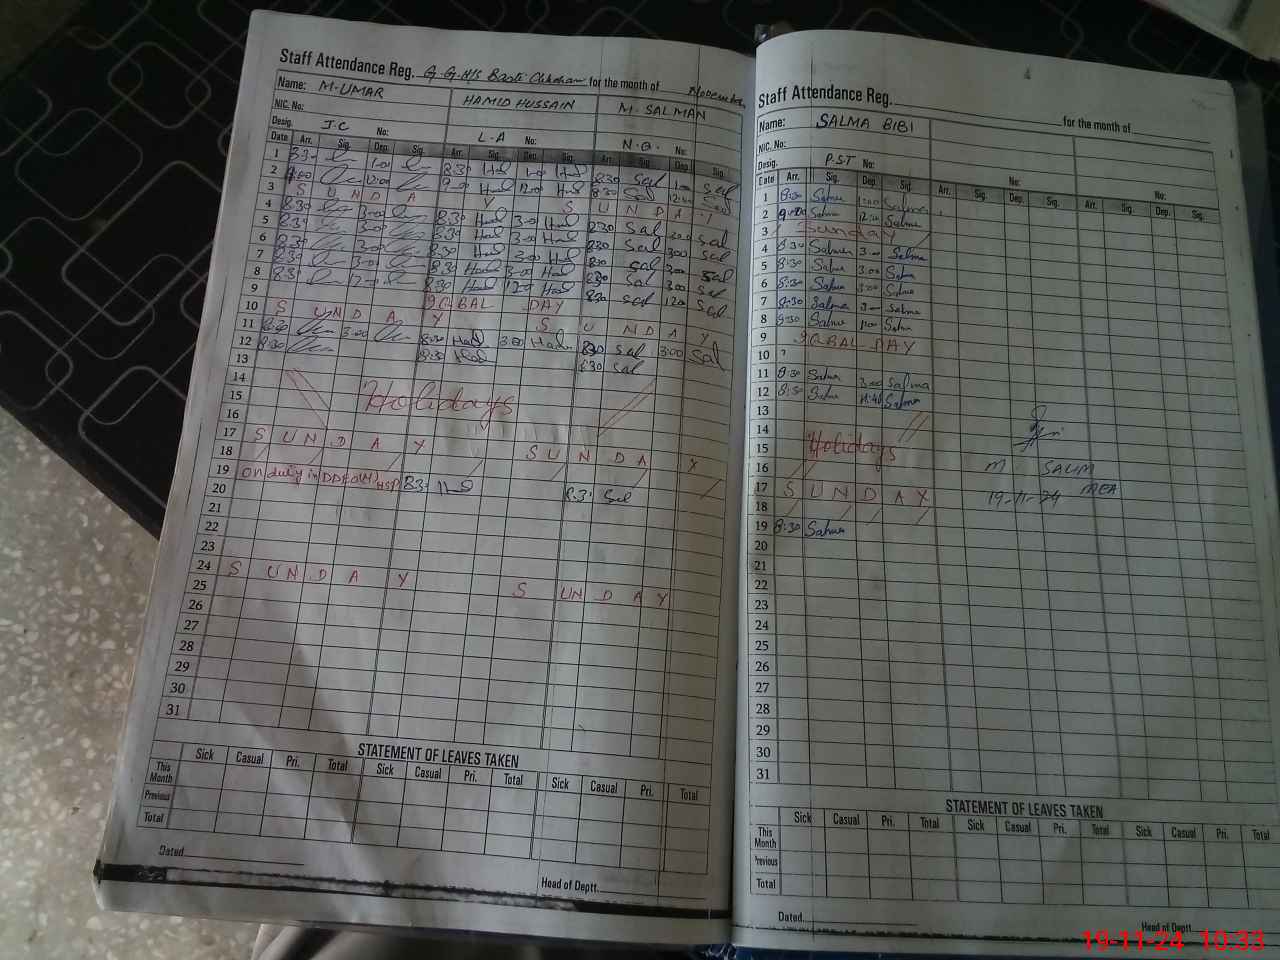 Staff Attendance Reg. G.G.H/S for the month of November
Name: M-UMAR HAMID HUSSAIN M. SALMAN
NIC. No:
Desig. J.C No: L.A No: N.Q. No:
Date Arr. Sig. Dep. Sig. Arr. Sig. Dep. Sig. Arr. Sig. Dep Sig.
1 8:30 1:00 8:30 Had 1:00 Had 8:30 Sal 1:00 Sal
2 9:00 12:00 9:00 Had 12:00 Had 8:30 Sal 12:00 Sal
3 S U N D A Y S U N D A Y
4 8:30 3:00 8:30 Had 3:00 Had 8:30 Sal 3:00 Sal
5 8:30 3:00 8:30 Had 3:00 Had 8:30 Sal 3:00 Sal
6 8:30 3:00 8:30 Had 3:00 Had 8:30 Sal 3:00 Sal
7 8:30 3:00 8:30 Had 3:00 Had 8:30 Sal 3:00 Sal
8 8:30 12:00 8:30 Had 12:00 Had 8:30 Sal 12:00 Sal
9 IQBAL DAY
10 S U N D A Y S U N D A Y
11 8:30 3:00 8:30 Had 3:00 Had 8:30 Sal 3:00 Sal
12 8:30 8:30 Had 8:30 Sal
13
14
15 Holidays
16
17 S U N D A Y S U N D A Y
18
19 On duty in DDEO(M) HSP 8:30 Had 8:30 Sal
20
21
22
23
24 S U N D A Y S U N D A Y
25
26
27
28
29
30
31
STATEMENT OF LEAVES TAKEN
Sick Casual Pri. Total Sick Casual Pri. Total Sick Casual Pri. Total
This Month
Previous
Total
Dated
Head of Deptt.
Staff Attendance Reg. for the month of
Name: SALMA BIBI
NIC. No:
Desig. P.S.T No: No: No:
Date Arr. Sig. Dep. Sig. Arr. Sig. Dep. Sig. Arr. Sig. Dep. Sig.
1 8:30 Salma 1:00 Salma
2 9:00 Salma 12:00 Salma
3 Sunday
4 8:30 Salma 3:00 Salma
5 8:30 Salma 3:00 Salma
6 8:30 Salma 3:00 Salma
7 8:30 Salma 3:00 Salma
8 8:30 Salma Salma
9 IQBAL DAY
10
11 8:30 Salma 3:00 Salma
12 8:30 Salma 11:40 Salma
13
14
15 Holidays
16 M SALIM
17 S U N D A Y MEA
18 19-11-24
19 8:30 Salma
20
21
22
23
24
25
26
27
28
29
30
31
STATEMENT OF LEAVES TAKEN
Sick Casual Pri. Total Sick Casual Pri. Total Sick Casual Pri. Total
This Month
Previous
Total
Dated
Head of Deptt.
19-11-24 10:33